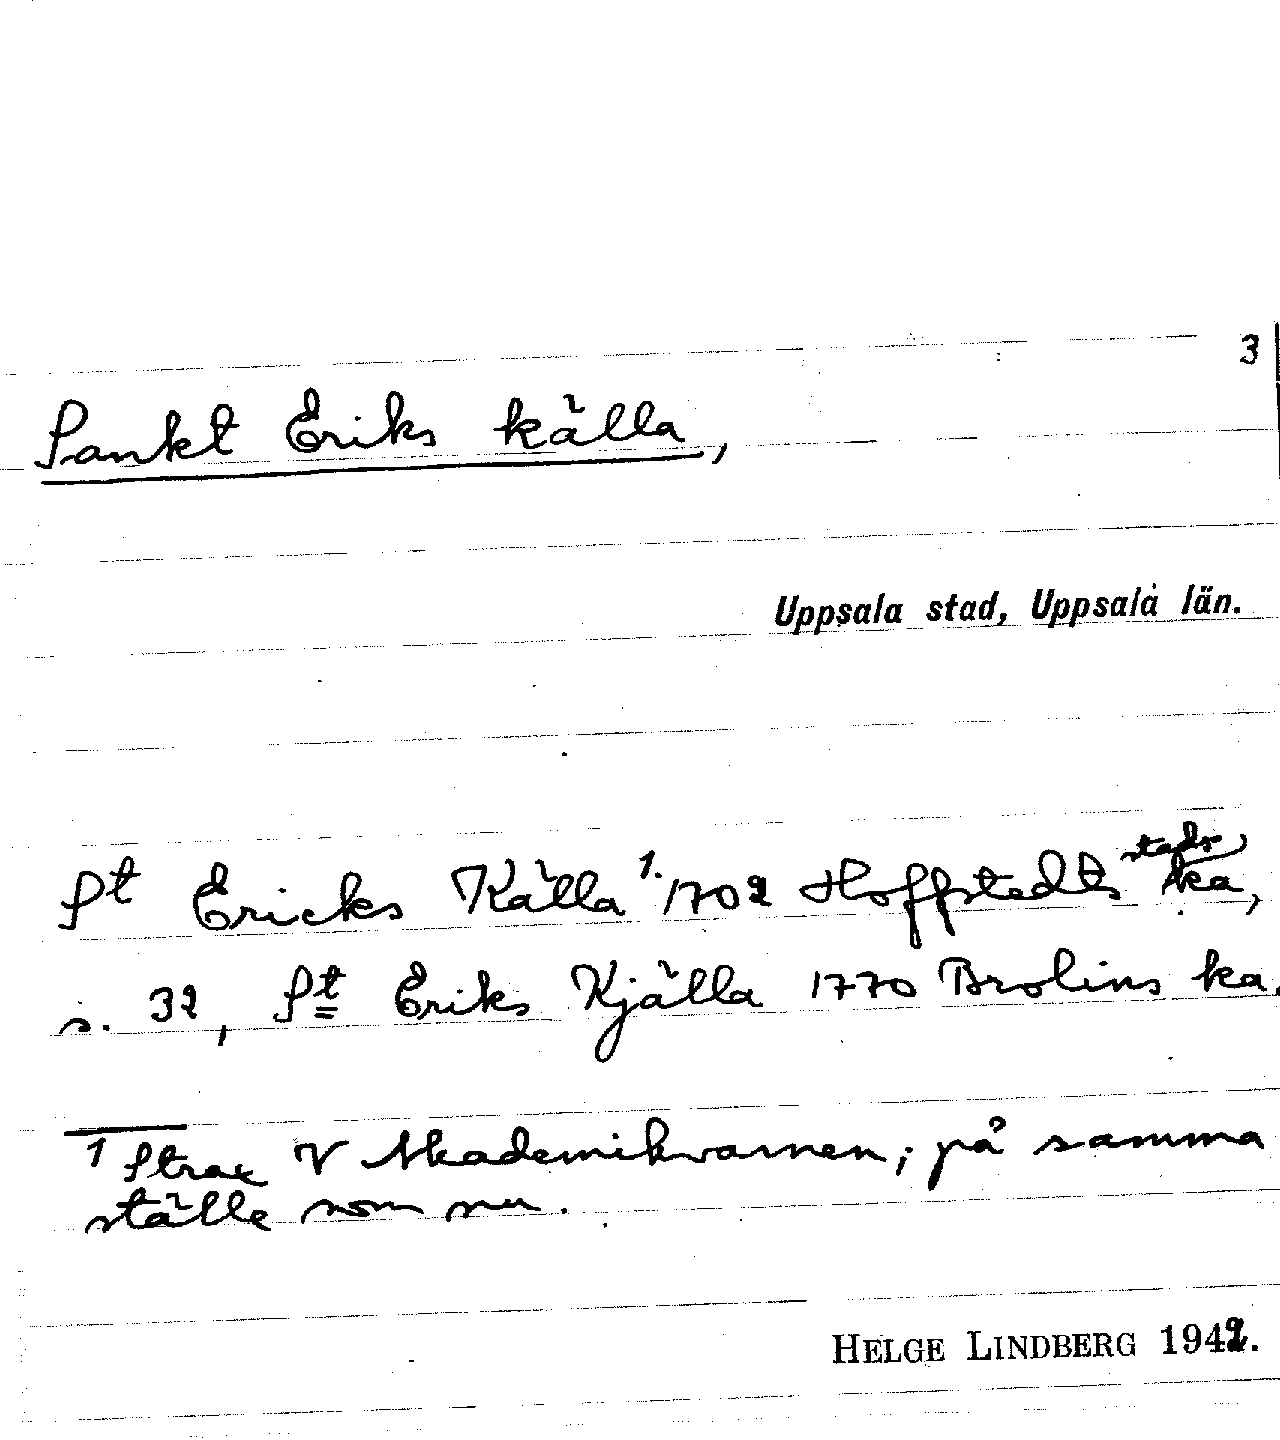 3
Sankt Eriks källa,
Uppsala stad, Uppsala län.
St Ericks Källa 1. 1702 Hoffstedts stads ka,
s. 32, St Eriks Kjälla 1770 Brolins ka.
1 Strax V Akademikvarnen; på samma
ställe som nu.
HELGE LINDBERG 1942.